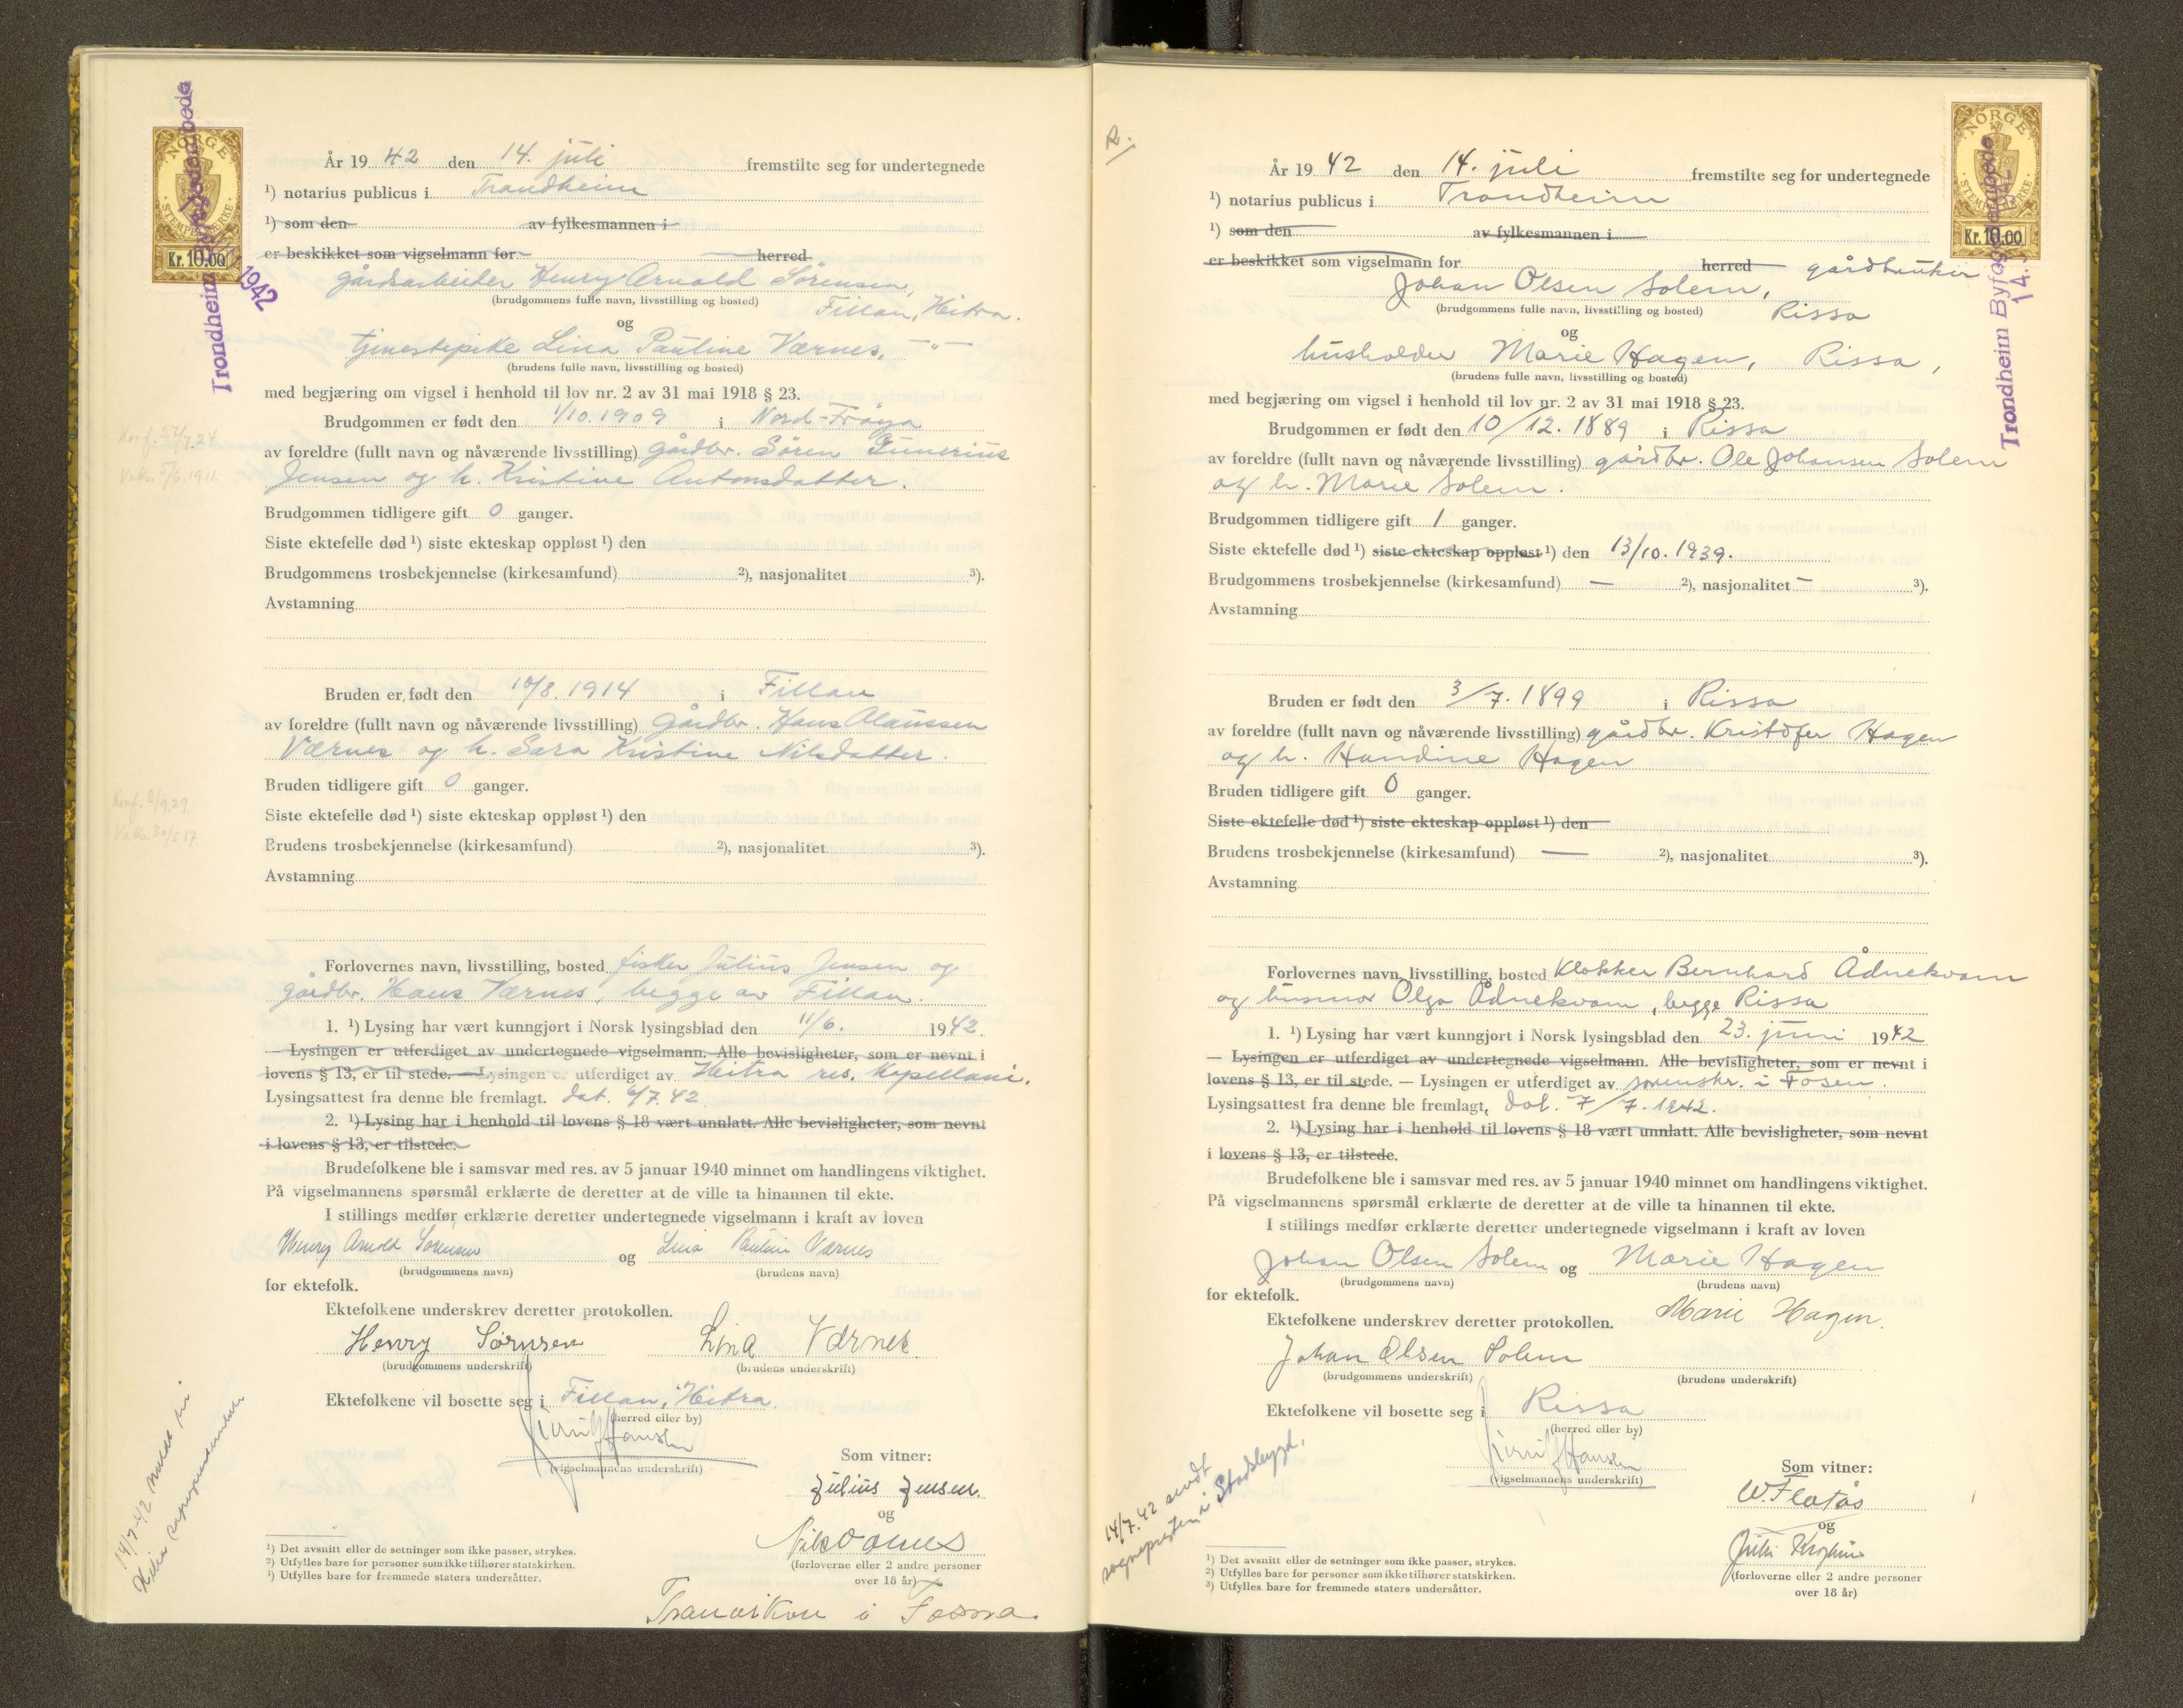 NORGE
STEMPELMERKE
Kr. 10.00
Trondheim Byfogdembede
1942
År 1942 den 14. juli fremstilte seg for undertegnede
¹) notarius publicus i Trondheim
¹) som den av fylkesmannen i
er beskikket som vigselmann for herred
gårdsarbeider Henry Arnold Sørensen,
(brudgommens fulle navn, livsstilling og bosted) Fillan, Hitra.
og
tjenestepike Lina Pauline Værnes, —"—
(brudens fulle navn, livsstilling og bosted)
med begjæring om vigsel i henhold til lov nr. 2 av 31 mai 1918 § 23.
Brudgommen er født den 1/10. 1909 i Nord-Frøya
Konf. 27/7.24
av foreldre (fullt navn og nåværende livsstilling) gårdbr. Søren Gunerius
Vaks. 5/6.1911
Jensen og h. Kristine Antonsdatter.
Brudgommen tidligere gift 0 ganger.
Siste ektefelle død ¹) siste ekteskap oppløst ¹) den
Brudgommens trosbekjennelse (kirkesamfund) ²), nasjonalitet ³).
Avstamning
Bruden er født den 10/8. 1914 i Fillan
av foreldre (fullt navn og nåværende livsstilling) Gårdbr. Hans Olaussen
Værnes og h. Sara Kristine Nilsdatter.
Bruden tidligere gift 0 ganger.
Konf. 8/9.29
Siste ektefelle død ¹) siste ekteskap oppløst ¹) den
Vaks. 30/5 17
Brudens trosbekjennelse (kirkesamfund) ²), nasjonalitet ³).
Avstamning
Forlovernes navn, livsstilling, bosted fisker Julius Jensen og
gårdbr. Hans Værnes, begge av Fillan.
1. ¹) Lysing har vært kunngjort i Norsk lysingsblad den 11/6. 1942.
— Lysingen er utferdiget av undertegnede vigselmann. Alle bevisligheter, som er nevnt i
lovens § 13, er til stede. — Lysingen er utferdiget av Hitra res. kapellani.
Lysingsattest fra denne ble fremlagt. dat. 6/7.42
2. ¹) Lysing har i henhold til lovens § 18 vært unnlatt. Alle bevisligheter, som nevnt
i lovens § 13, er tilstede.
Brudefolkene ble i samsvar med res. av 5 januar 1940 minnet om handlingens viktighet.
På vigselmannens spørsmål erklærte de deretter at de ville ta hinannen til ekte.
I stillings medfør erklærte deretter undertegnede vigselmann i kraft av loven
Henry Arnold Sørensen og Lina Pauline Værnes
(brudgommens navn) (brudens navn)
for ektefolk.
Ektefolkene underskrev deretter protokollen.
Henry Sørensen Lina Værnes.
(brudgommens underskrift) (brudens underskrift)
Ektefolkene vil bosette seg i Fillan, Hitra.
(herred eller by)
Hansen
(vigselmannens underskrift)
Som vitner:
Julius Jensen.
og
Nils
(forloverne eller 2 andre personer
over 18 år)
i
14/7-42
¹) Det avsnitt eller de setninger som ikke passer, strykes.
²) Utfylles bare for personer som ikke tilhører statskirken.
³) Utfylles bare for fremmede staters undersåtter.
R.
NORGE
STEMPELMERKE
Kr. 10.00
Trondheim Byfogdembede
14.
År 1942 den 14. juli fremstilte seg for undertegnede
¹) notarius publicus i Trondheim
¹) som den av fylkesmannen i
er beskikket som vigselmann for herred gårdbruker
Johan Olsen Solem,
(brudgommens fulle navn, livsstilling og bosted) Rissa
og
husholder Marie Hagen, Rissa,
(brudens fulle navn, livsstilling og bosted)
med begjæring om vigsel i henhold til lov nr. 2 av 31 mai 1918 § 23.
Brudgommen er født den 10/12. 1889 i Rissa
av foreldre (fullt navn og nåværende livsstilling) gårdbr. Ole Johansen Solem
og h. Marie Solem.
Brudgommen tidligere gift 1 ganger.
Siste ektefelle død ¹) siste ekteskap oppløst ¹) den 13/10. 1939.
Brudgommens trosbekjennelse (kirkesamfund) — ²), nasjonalitet — ³).
Avstamning
Bruden er født den 3/7. 1899 i Rissa
av foreldre (fullt navn og nåværende livsstilling) gårdbr. Kristofer Hagen
og h. Handine Hagen
Bruden tidligere gift 0 ganger.
Siste ektefelle død ¹) siste ekteskap oppløst ¹) den
Brudens trosbekjennelse (kirkesamfund) — ²), nasjonalitet ³).
Avstamning
Forlovernes navn, livsstilling, bosted Klokker Bernhard Ådnekvam
og husmor Olga Ådnekvam, begge Rissa
1. ¹) Lysing har vært kunngjort i Norsk lysingsblad den 23. juni 1942
— Lysingen er utferdiget av undertegnede vigselmann. Alle bevisligheter, som er nevnt i
lovens § 13, er til stede. — Lysingen er utferdiget av sorenskr. i Fosen.
Lysingsattest fra denne ble fremlagt, dat. 7/7. 1942.
2. ¹) Lysing har i henhold til lovens § 18 vært unnlatt. Alle bevisligheter, som nevnt
i lovens § 13, er tilstede.
Brudefolkene ble i samsvar med res. av 5 januar 1940 minnet om handlingens viktighet.
På vigselmannens spørsmål erklærte de deretter at de ville ta hinannen til ekte.
I stillings medfør erklærte deretter undertegnede vigselmann i kraft av loven
Johan Olsen Solem og Marie Hagen
(brudgommens navn) (brudens navn)
for ektefolk.
Ektefolkene underskrev deretter protokollen. Marie Hagen.
Johan Olsen Solem
(brudgommens underskrift) (brudens underskrift)
Ektefolkene vil bosette seg i Rissa
(herred eller by)
Hansen
(vigselmannens underskrift)
Som vitner:
W. Flatås
og
(forloverne eller 2 andre personer
over 18 år)
14/7.42 sendt
sognepresten i Stadsbygd.
¹) Det avsnitt eller de setninger som ikke passer, strykes.
²) Utfylles bare for personer som ikke tilhører statskirken.
³) Utfylles bare for fremmede staters undersåtter.